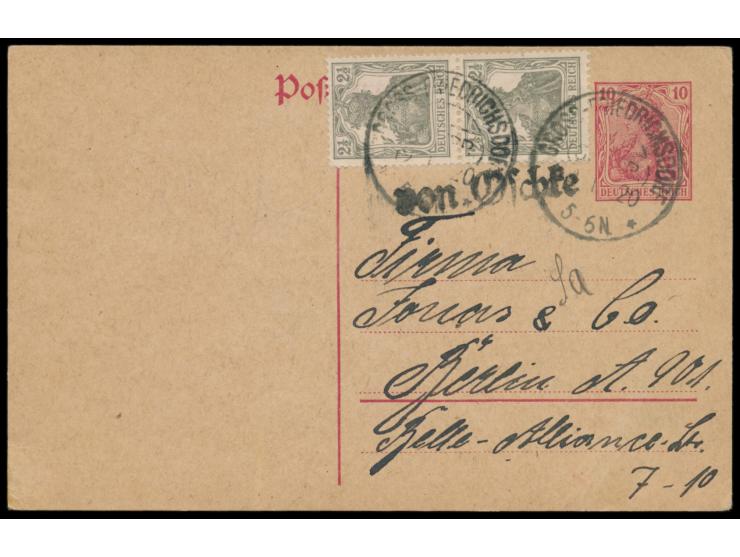 Post
2½ DEUTSCHES REICH
2½ DEUTSCHES REICH
10 10
DEUTSCHES REICH
GROSS-FRIEDRICHSDORF
GROSS-FRIEDRICHSDORF
20
5-6N. *
von Oschke
Firma
Sa
Jonas & Co.
Berlin S. W.
Belle-Alliance-Str.
7-10